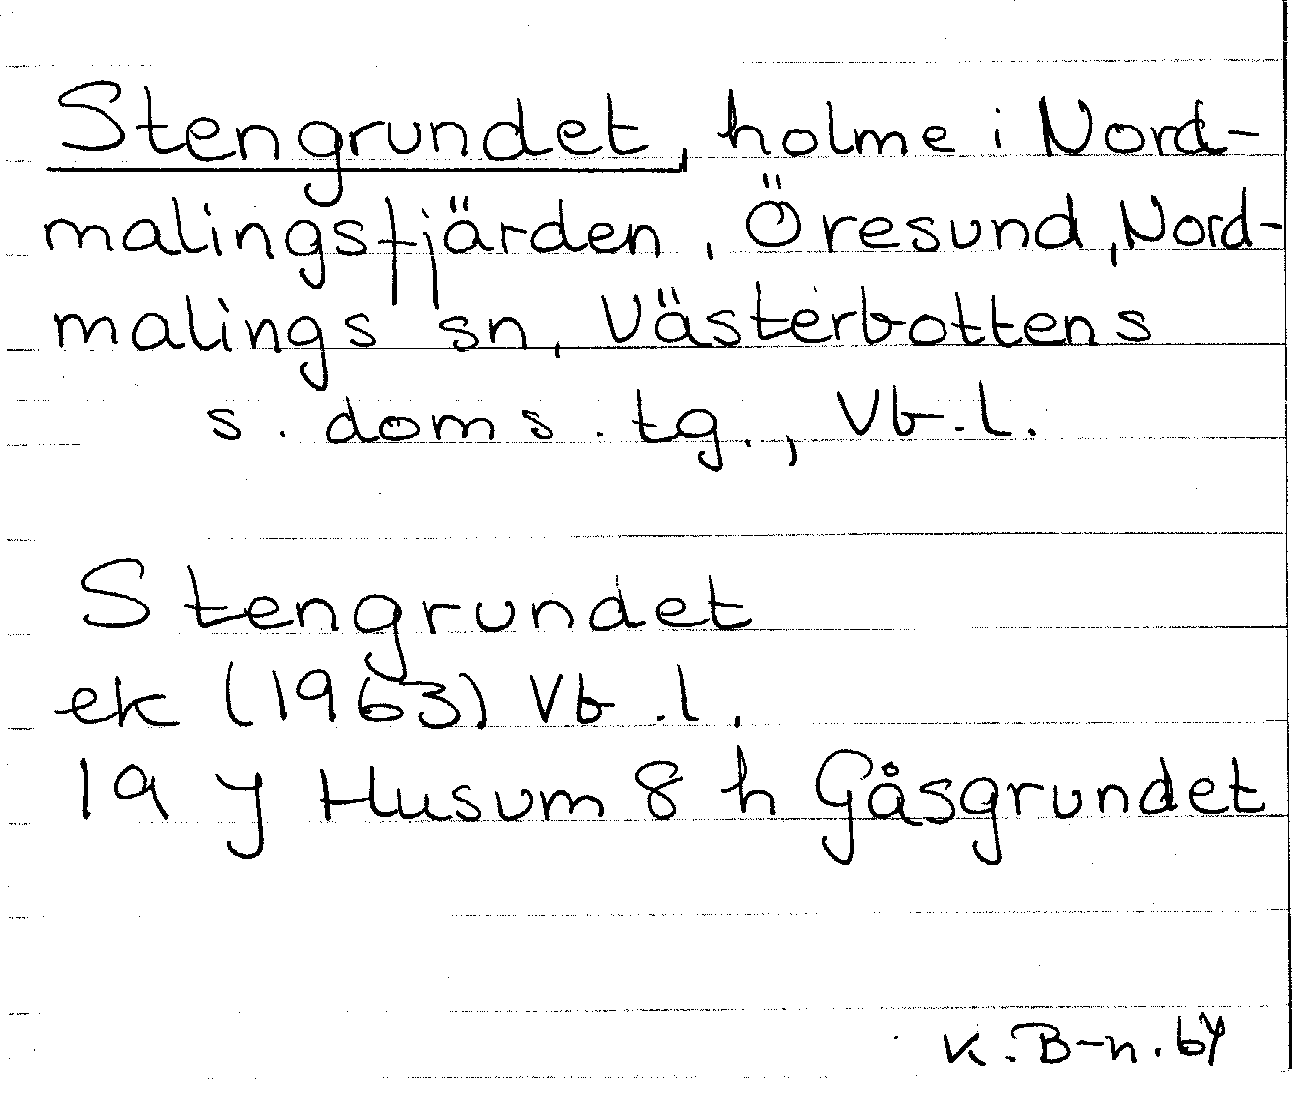 Stengrundet, holme i Nord-
malingsfjärden, Öresund, Nord-
malings sn, Västerbottens
s. doms. tg., Vb. l.
Stengrundet
ek (1963) Vb. l.
19 J Husum 8 h Gåsgrundet
K. B-n.